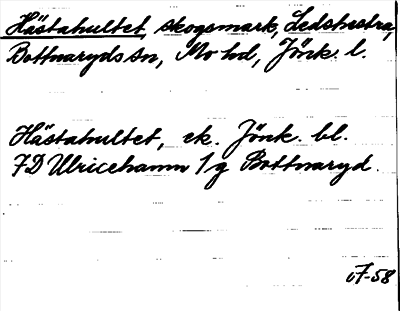 Hästahultet, skogsmark, Ledstastra,
Bottnaryds sn, Mo hd, Jönk. l.
Hästahultet, ek. Jönk. bl.
7D Ulricehamn 1g Bottnaryd.